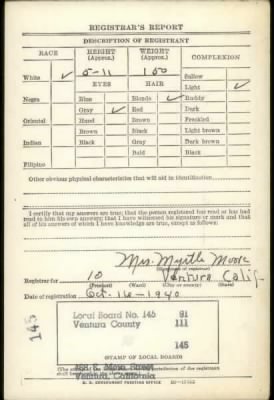 REGISTRAR'S REPORT
DESCRIPTION OF REGISTRANT
RACE HEIGHT (Approx.) WEIGHT (Approx.) COMPLEXION
White ✓ 5-11 Sallow
EYES HAIR Light ✓
Negro Blue Blonde ✓ Ruddy
Gray ✓ Red Dark
Oriental Hazel Brown Freckled
Brown Black Light brown
Indian Black Gray Dark brown
Bald Black
Filipino
Other obvious physical characteristics that will aid in identification
I certify that my answers are true; that the person registered has read or has had
read to him his own answers; that I have witnessed his signature or mark and that
all of his answers of which I have knowledge are true, except as follows:
Mrs. Myrtle Moore
(Signature of registrar)
Registrar for 10 Ventura Calif.
(Precinct) (Ward) (City or county) (State)
Date of registration Oct. 16-1940
145
Local Board No. 145 91
Ventura County 111
145
STAMP OF LOCAL BOARD
(The stamp of the Local Board of the registrant
Main Street
Ventura, California
U. S. GOVERNMENT PRINTING OFFICE